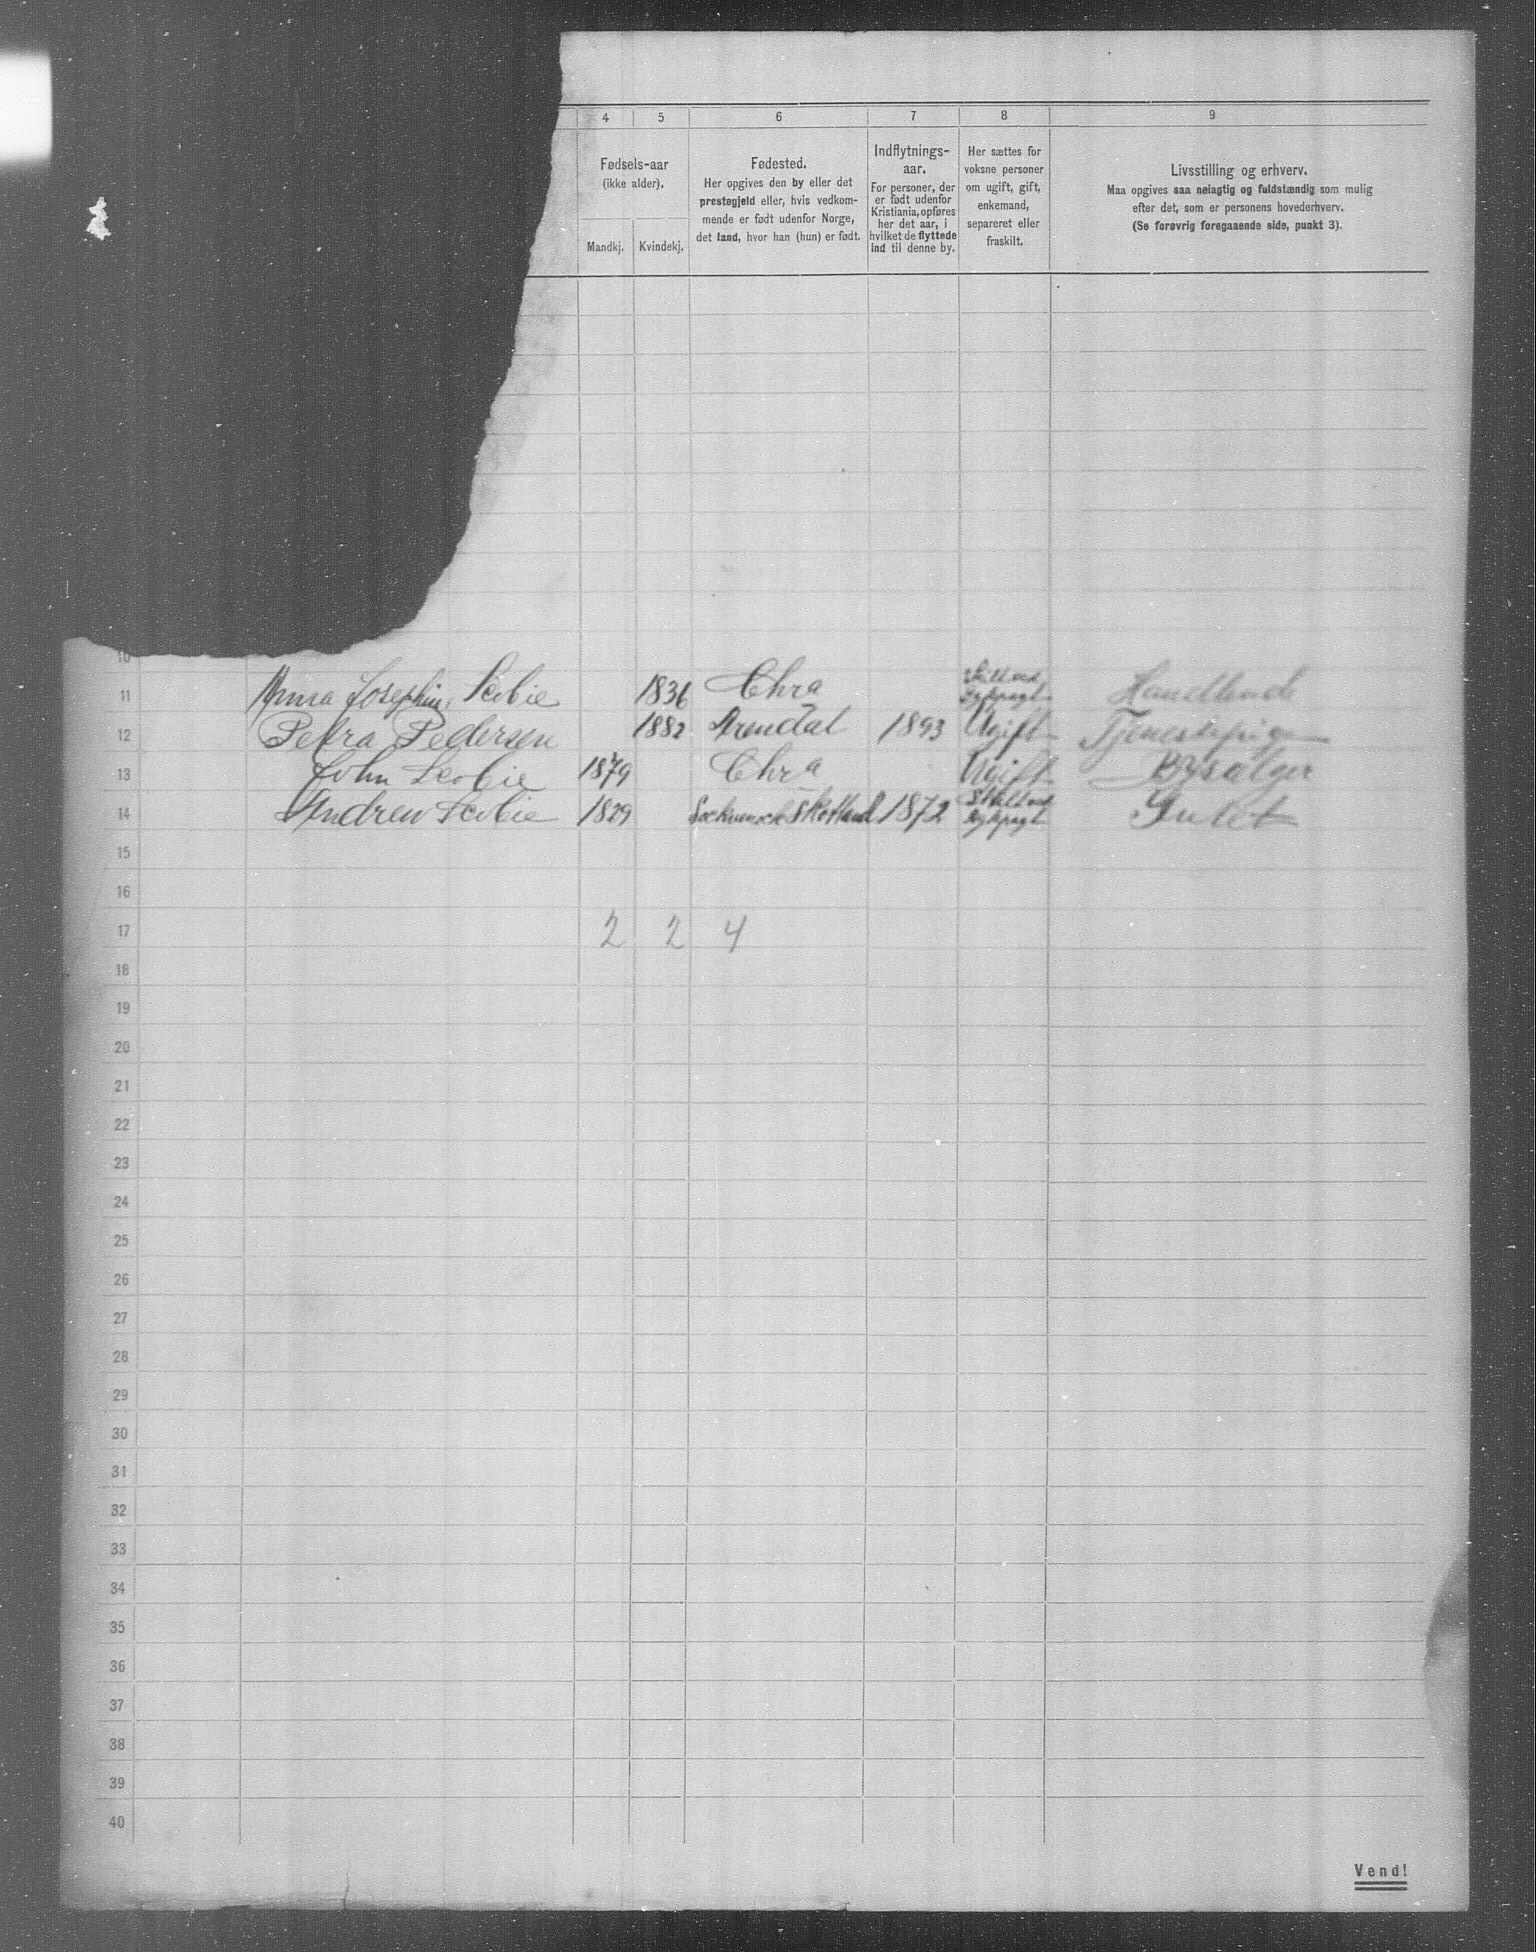 4 5 6 7 8 9
Fødsels-aar
(ikke alder).
Mandkj. Kvindekj.
Fødested.
Her opgives den by eller det
prestegjeld eller, hvis vedkom-
mende er født udenfor Norge,
det land, hvor han (hun) er født.
Indflytnings-
aar.
For personer, der
er født udenfor
Kristiania, opføres
her det aar, i
hvilket de flyttede
ind til denne by.
Her sættes for
voksne personer
om ugift, gift,
enkemand,
separeret eller
fraskilt.
Livsstilling og erhverv.
Maa opgives saa nøiagtig og fuldstændig som mulig
efter det, som er personens hovederhverv.
(Se forøvrig foregaaende side, punkt 3).
10
11 Anna Josephine Scobie 1836 Chra
12 Petra Pedersen 1882 Arendal 1893 Ugift Tjenestepige
13 John Scobie 1879 Chra Ugift Bysælger
14 Andrew Scobie 1829 Skotland 1872 Intet
15
16
17 2 2 4
18
19
20
21
22
23
24
25
26
27
28
29
30
31
32
33
34
35
36
37
38
39
40
Vend!